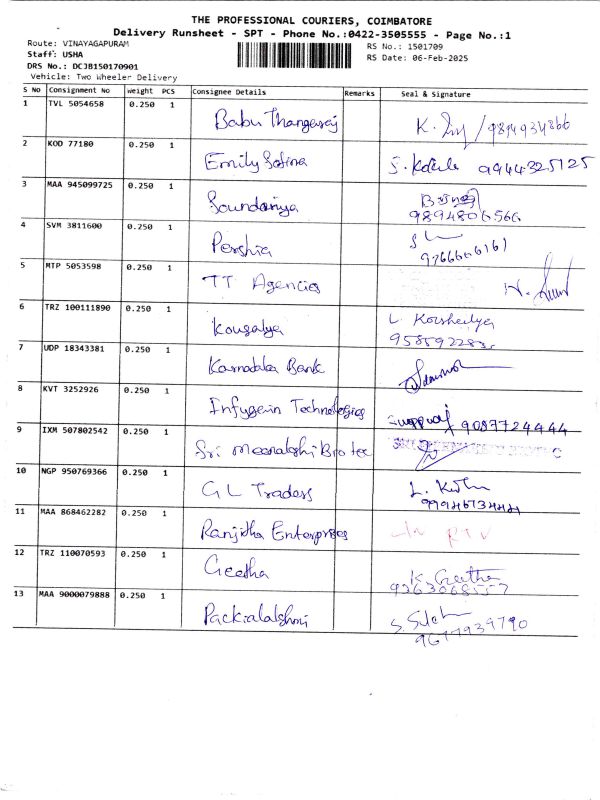 THE PROFESSIONAL COURIERS, COIMBATORE
Delivery Runsheet - SPT - Phone No.:0422-3505555 - Page No.:1
Route: VINAYAGAPURAM
Staff: USHA
DRS No.: DCJB150170901
Vehicle: Two Wheeler Delivery
RS No.: 1501709
RS Date: 06-Feb-2025
S No Consignment No Weight PCS Consignee Details Remarks Seal & Signature
1 TVL 5054658 0.250 1 Babu Thangaraj K. /9894934866
2 KOD 77180 0.250 1 Emily Sofina S. 9944325125
3 MAA 945099725 0.250 1 Soundariya
9894806566
4 SVM 3811600 0.250 1 Pershia
9266666161
5 MTP 5053598 0.250 1 TT Agencies
6 TRZ 100111890 0.250 1 Kousalya L. Korsheelya
7 UDP 18343381 0.250 1 Karnataka Bank
8 KVT 3252926 0.250 1 Infygain Technologies 9087724444
9 IXM 507802542 0.250 1 Sri Meenakshi Bio tec
10 NGP 950769366 0.250 1 G L Traders L.
11 MAA 868462282 0.250 1 Ranjitha Enterprises RTV
12 TRZ 110070593 0.250 1 Geetha K. Geetha
13 MAA 9000079888 0.250 1 Packialakshmi S.
9677939790